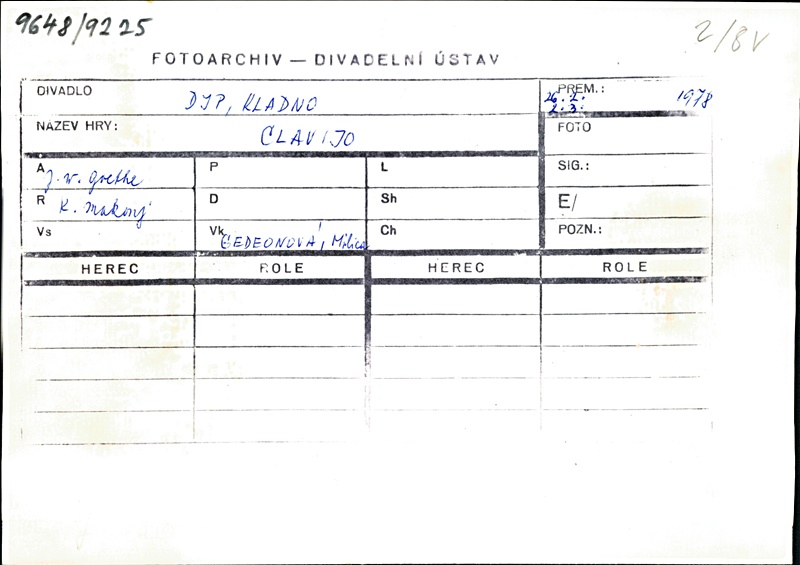 9648/9225
2/8V
FOTOARCHIV — DIVADELNÍ ÚSTAV
DIVADLO DJP, KLADNO
PREM.: 26. 2. 1978
2. 3.
NÁZEV HRY: CLAVIJO
FOTO
A J. W. Goethe
P
L
SIG.:
R K. Makonj
D
Sh
E/
Vs
Vk GEDEONOVÁ, Milica
Ch
POZN.:
HEREC ROLE HEREC ROLE